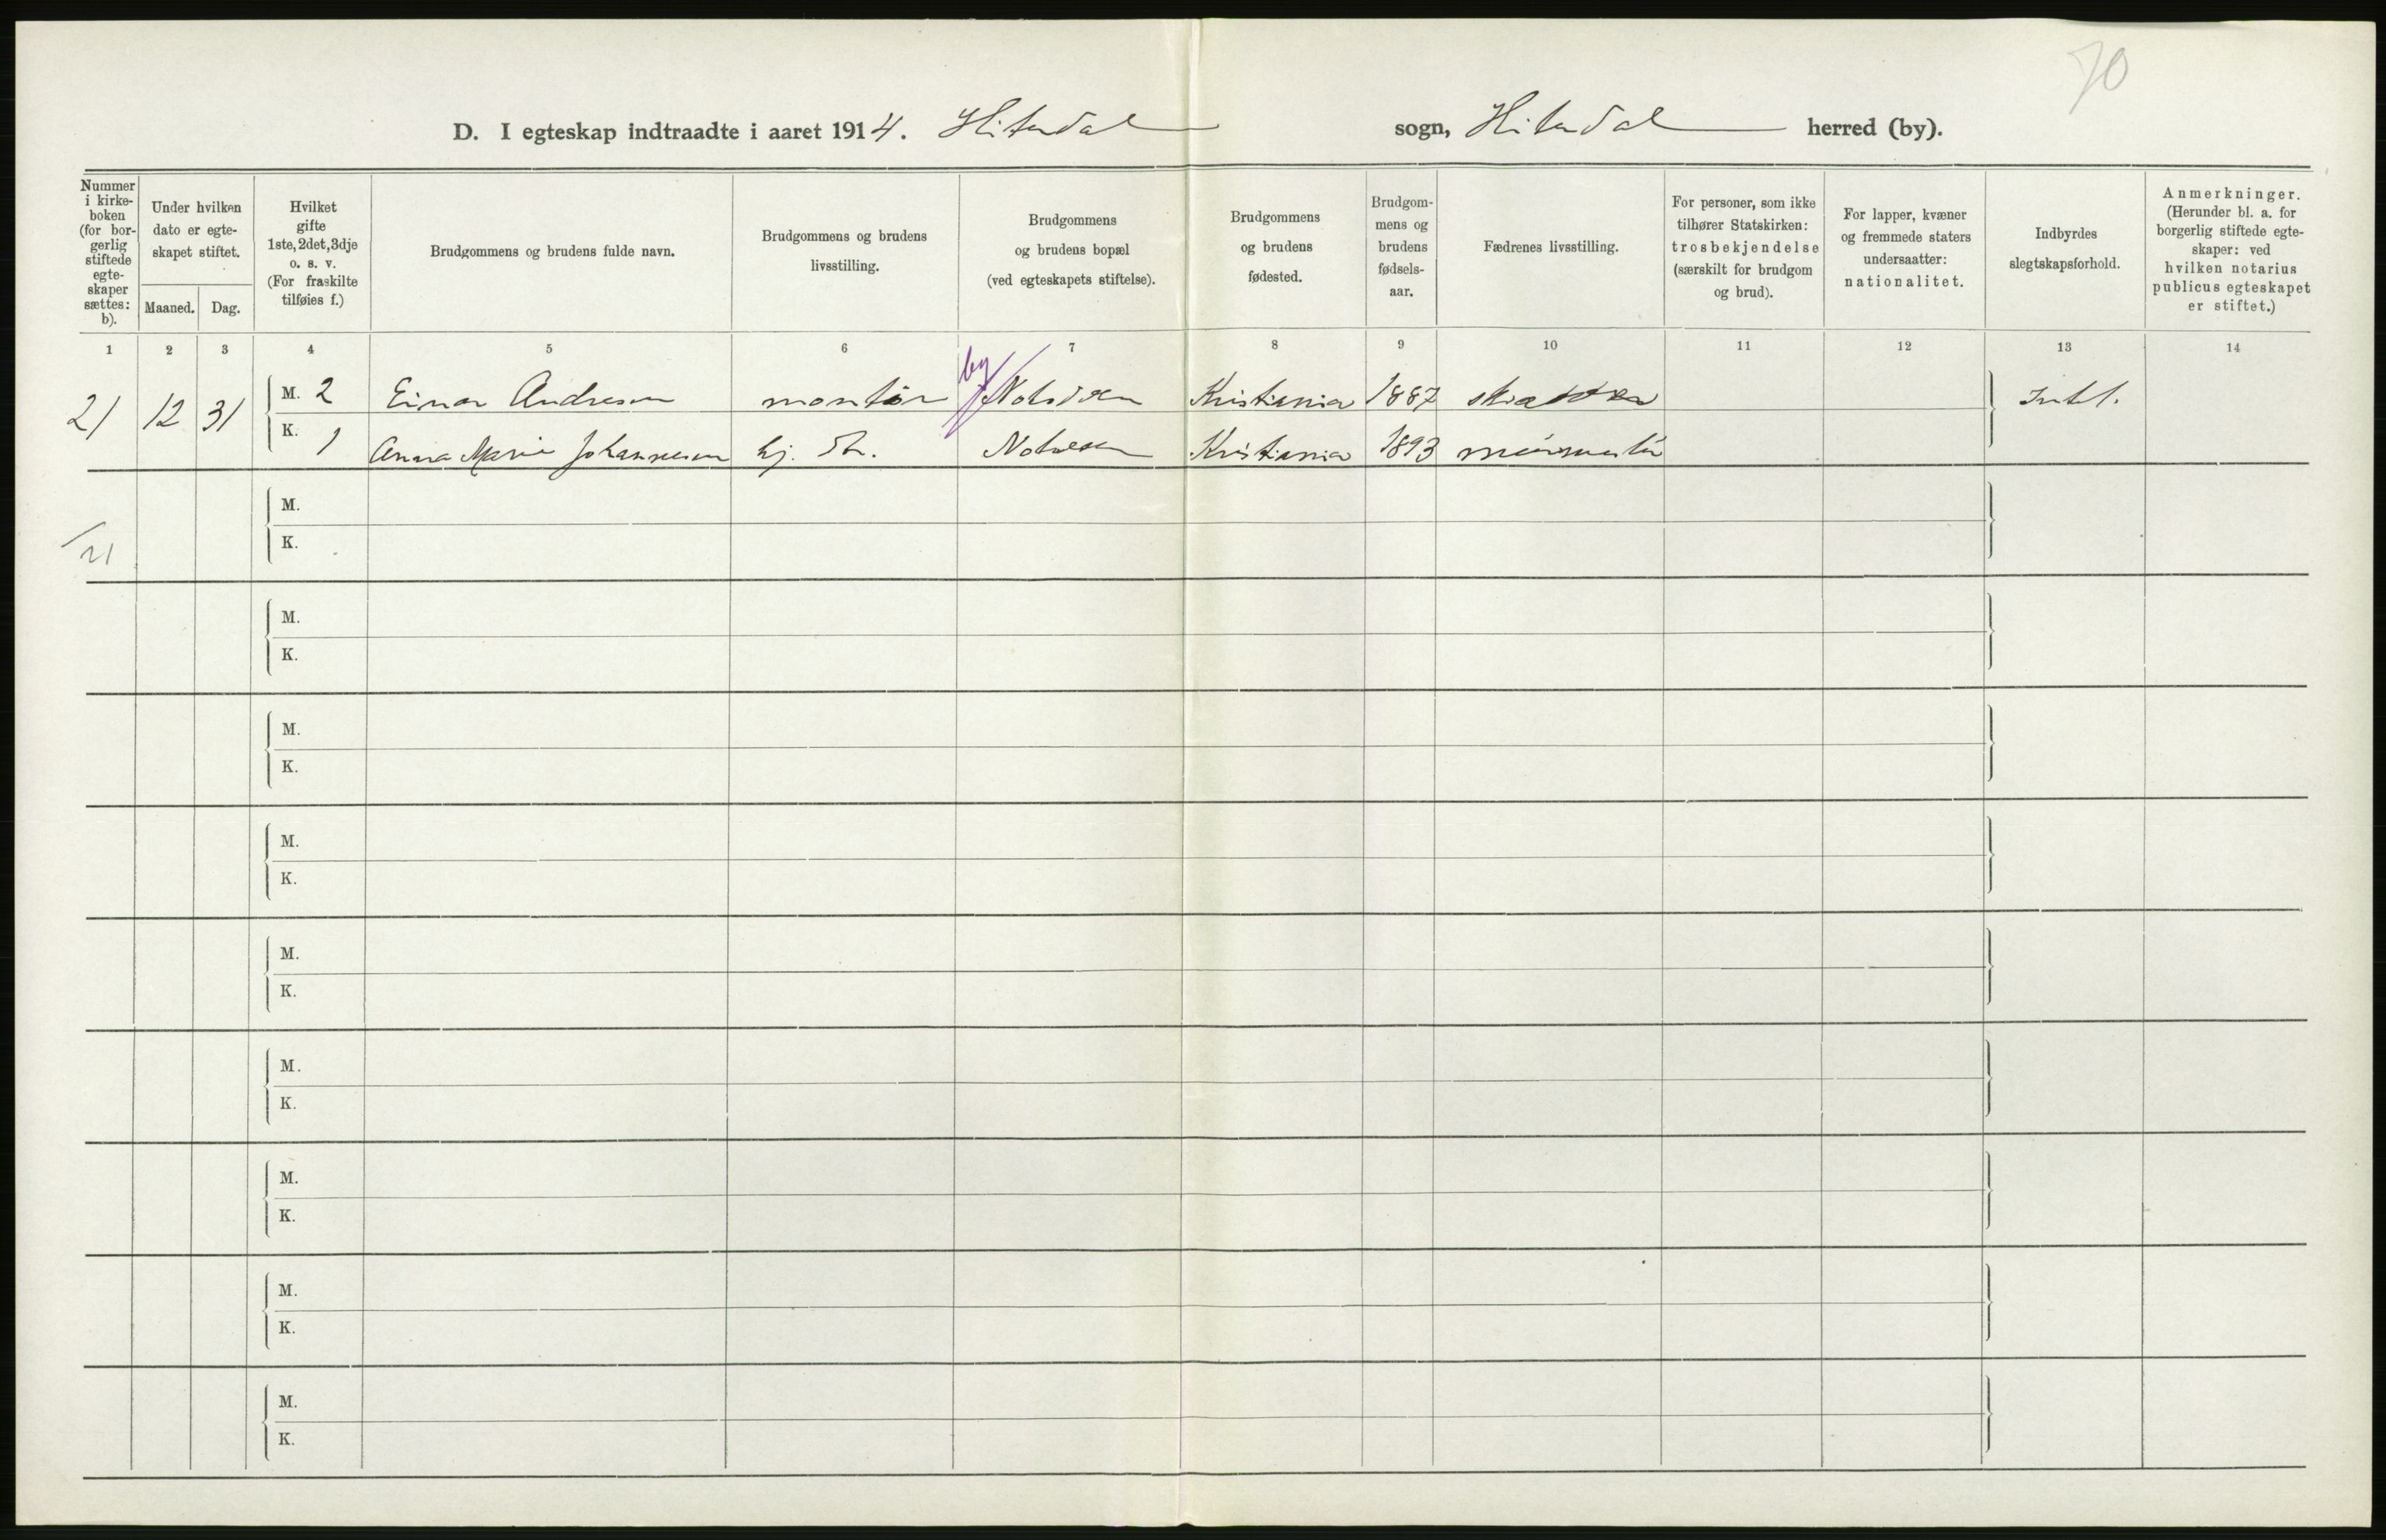 70
D. I egteskap indtraadte i aaret 1914. Hiterdal sogn, Hiterdal herred (by).
Nummer
i kirke-
boken
(for bor-
gerlig
stiftede
egte-
skaper
sættes:
b).
Under hvilken
dato er egte-
skapet stiftet.
Maaned.
Dag.
Hvilket
gifte
1ste, 2det, 3dje
o. s. v.
(For fraskilte
tilføies f.)
Brudgommens og brudens fulde navn.
Brudgommens og brudens
livsstilling.
Brudgommens
og brudens bopæl
(ved egteskapets stiftelse).
Brudgommens
og brudens
fødested.
Brudgom-
mens og
brudens
fødsels-
aar.
Fædrenes livsstilling.
For personer, som ikke
tilhører Statskirken:
trosbekjendelse
(særskilt for brudgom
og brud).
For lapper, kvæner
og fremmede staters
undersaatter:
nationalitet.
Indbyrdes
slegtskapsforhold.
Anmerkninger.
(Herunder bl. a. for
borgerlig stiftede egte-
skaper: ved
hvilken notarius
publicus egteskapet
er stiftet.)
1 2 3 4 5 6 7 8 9 10 11 12 13 14
by
21 12 31 M. 2 Einar Andresen montör Notodden Kristiania 1887 Intet.
K. 1 Anna Marie Johannesen hj. Notodden Kristiania 1893 murmester
M.
21
K.
M.
K.
M.
K.
M.
K.
M.
K.
M.
K.
M.
K.
M.
K.
M.
K.